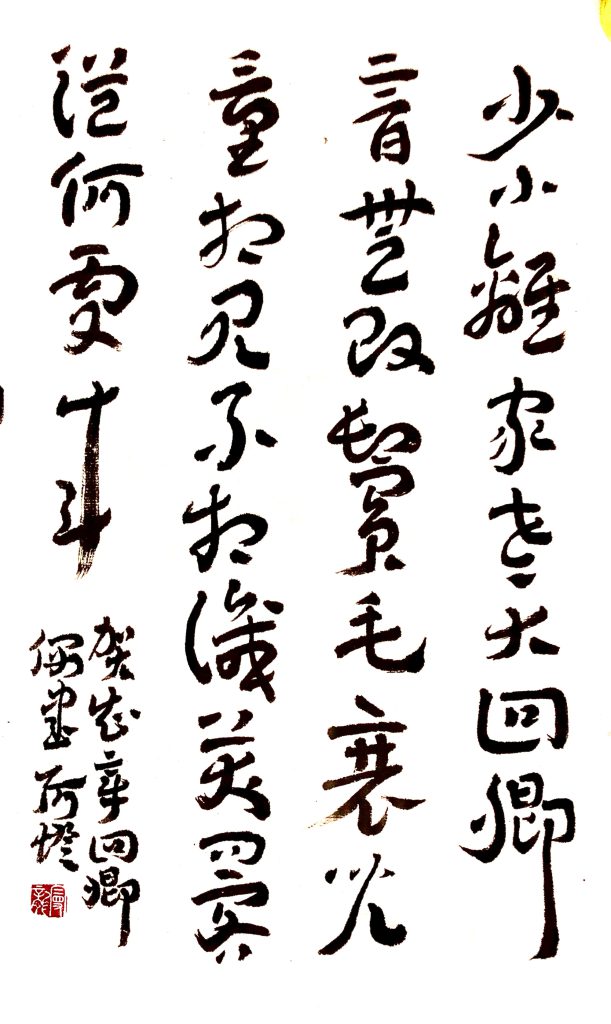 少小離家老大回鄉
音無改鬢毛衰兒
童相見不相識笑問客
從何處來
賀知章回鄉
偶書 阿